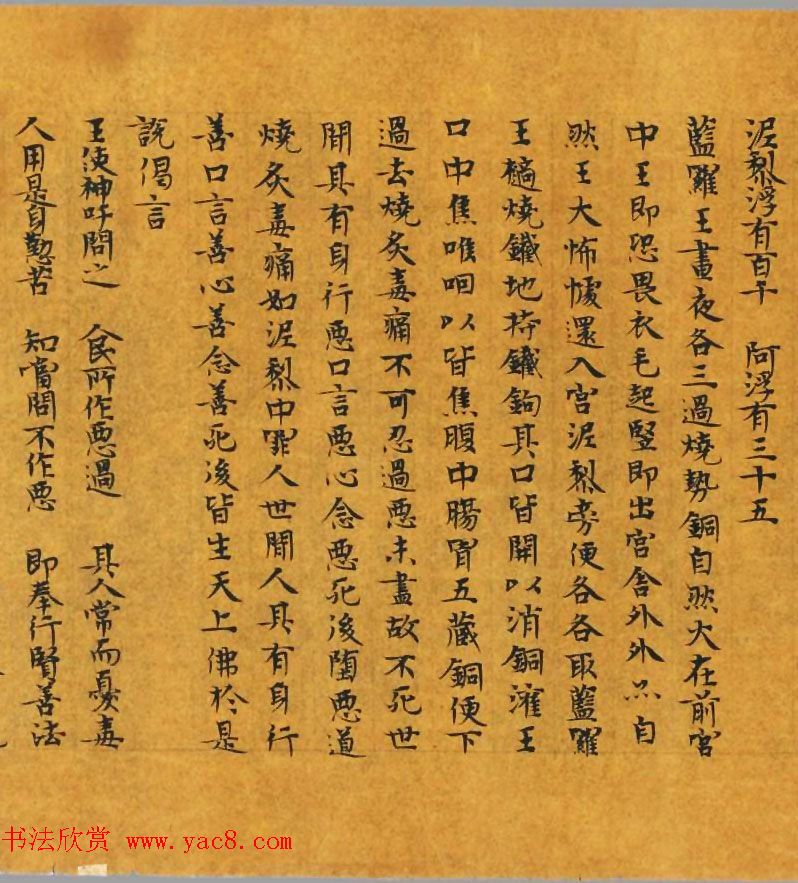 泥梨浮有百千　阿浮有三十五
藍羅王晝夜各三過燒熱銅自然火在前宮
中王即恐畏衣毛起豎即出宮舍外外亦自
然王大怖懅還入宮泥梨旁便各各取藍羅
王擿燒鐵地持鐵鉤其口皆開以消銅灌王
口中焦喉咽以皆焦腹中腸胃五藏銅便下
過去燒炙毒痛不可忍過惡未盡故不死世
間其有身行惡口言惡心念惡死後墮惡道
燒炙毒痛如泥梨中罪人世間人其有身行
善口言善心善念善死後皆生天上佛於是
說偈言
王使神呼問之　人民所作惡過　其人常而憂毒
人用是身勤苦　知當問不作惡　即奉行賢善法
书法欣赏 www.yac8.com